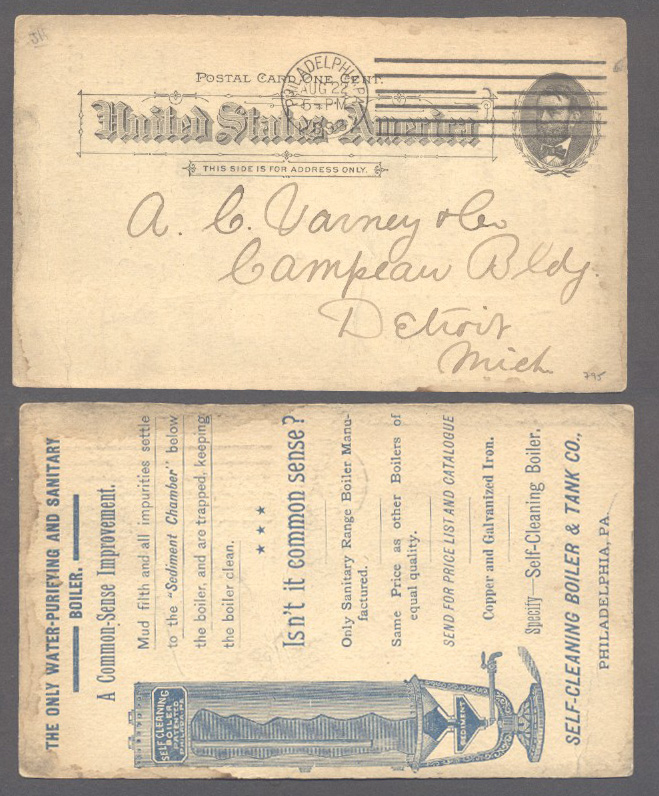 POSTAL CARD ONE CENT.
United States of America
PHILADELPHIA, PA.
AUG 22
6 - PM
THIS SIDE IS FOR ADDRESS ONLY.
A. C. Varney & Co
Campeau Bldg.
Detroit
Mich
795
THE ONLY WATER-PURIFYING AND SANITARY
BOILER.
A Common-Sense Improvement.
Mud filth and all impurities settle
to the "Sediment Chamber" below
the boiler, and are trapped, keeping
the boiler clean.
★ ★ ★
Isn't it common sense?
Only Sanitary Range Boiler Manu-
factured.
Same Price as other Boilers of
equal quality.
SEND FOR PRICE LIST AND CATALOGUE
Copper and Galvanized Iron.
Specify Self-Cleaning Boiler.
SELF-CLEANING BOILER & TANK CO.,
PHILADELPHIA, PA.
SELF CLEANING
BOILER
PATENTED
PHILADA. PA.
SEDIMENT